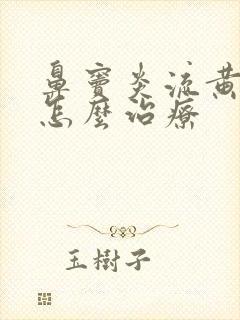 鼻竇炎流黃
怎麼治療
玉樹子